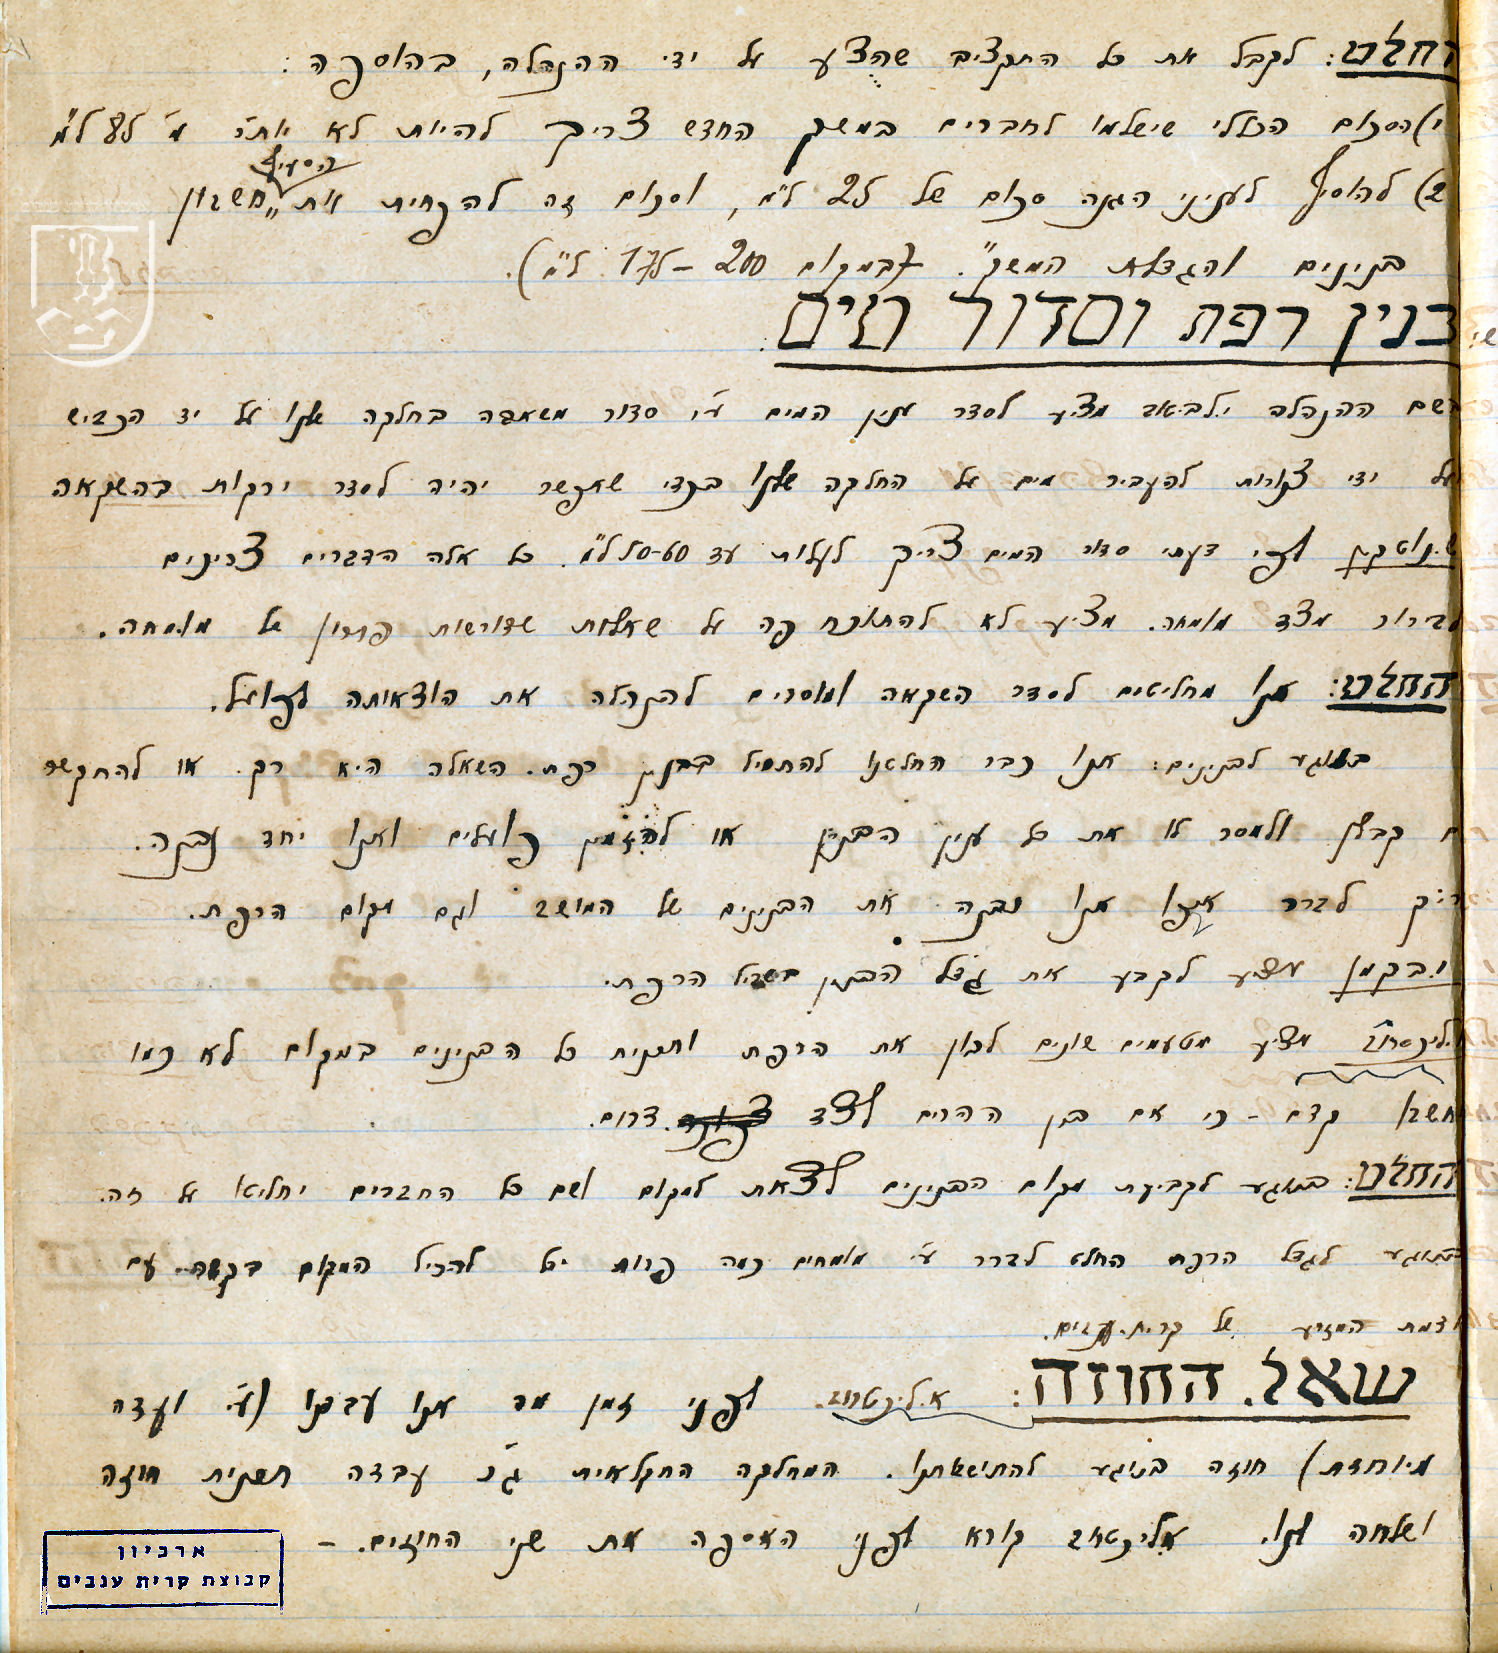 החלט: לקבל את כל התקציב שהצע על ידי ההנהלה, בהוספה:
1) הסכום הכללי שישלמו לחברים במשק החדש צריך להיות לא יותר מ
הסעיף
2) להוסיף לעניני הגנה סכום של 25 ל"מ, וסכום זה להפחית את „חשבון
בנינים והגדלת המשק". (במקום 200 – 175 ל"מ).
בנין רפת וסדור מים
בשם ההנהלה מציע לסדר ענין המים ע"י סדור משאבה בחלקה שלנו על יד הכביש
ועל ידי צנורות להעביר מים על החלקה שלנו בכדי שאפשר יהיה לסדר ירקות בהשקאה
לפי דעתי סדור המים צריך לעלות עד 50-60 ל"מ. כל אלה הדברים צריכים
לבירור מצד מומחה. מציע לא להתוכח פה על שאלות שדורשות פתרון של מומחה.
החלט: אנו מחליטים לסדר השקאה ומוסרים להנהלה את הוצאותה לפועל.
בנוגע לבנינים: אנו כבר החלטנו להתחיל בבנין רפת. השאלה היא רק. או להתקשר
עם קבלן ולמסר לו את כל ענין הבנין או להזמין פועלים ואנו יחד נבנה.
צריך לברר איפה אנו נבנה את הבנינים של המושב וגם מקום הרפת.
מציע לקבע את גודל הבנין בשביל הרפת.
מציע מטעמים שונים לבנות את הרפת ותכנית כל הבנינים במקום לא כמו
שחשבו קודם – כי אם בין ההרים לצד דרום.
החלט: בנוגע לקביעת מקום הבנינים לצאת למקום ושם כל החברים יחליטו על זה.
בנוגע לגודל הרפת החלט לברר ע"י מומחים כמה פרות יכל להכיל המקום בקשר עם
אדמת המזרע של קרית-ענבים.
שאל. החוזה: א. ליכטרוב. לפני זמן מה אנו עבדנו (ע"י ועדה
מיוחדת) חוזה בנוגע להתישבותנו. המחלקה החקלאית ג"כ עבדה תכנית חוזה
ושלחה לנו. א. ליכטרוב קורא לפני האספה את שני החוזים. –
ארכיון
קבוצת קרית ענבים